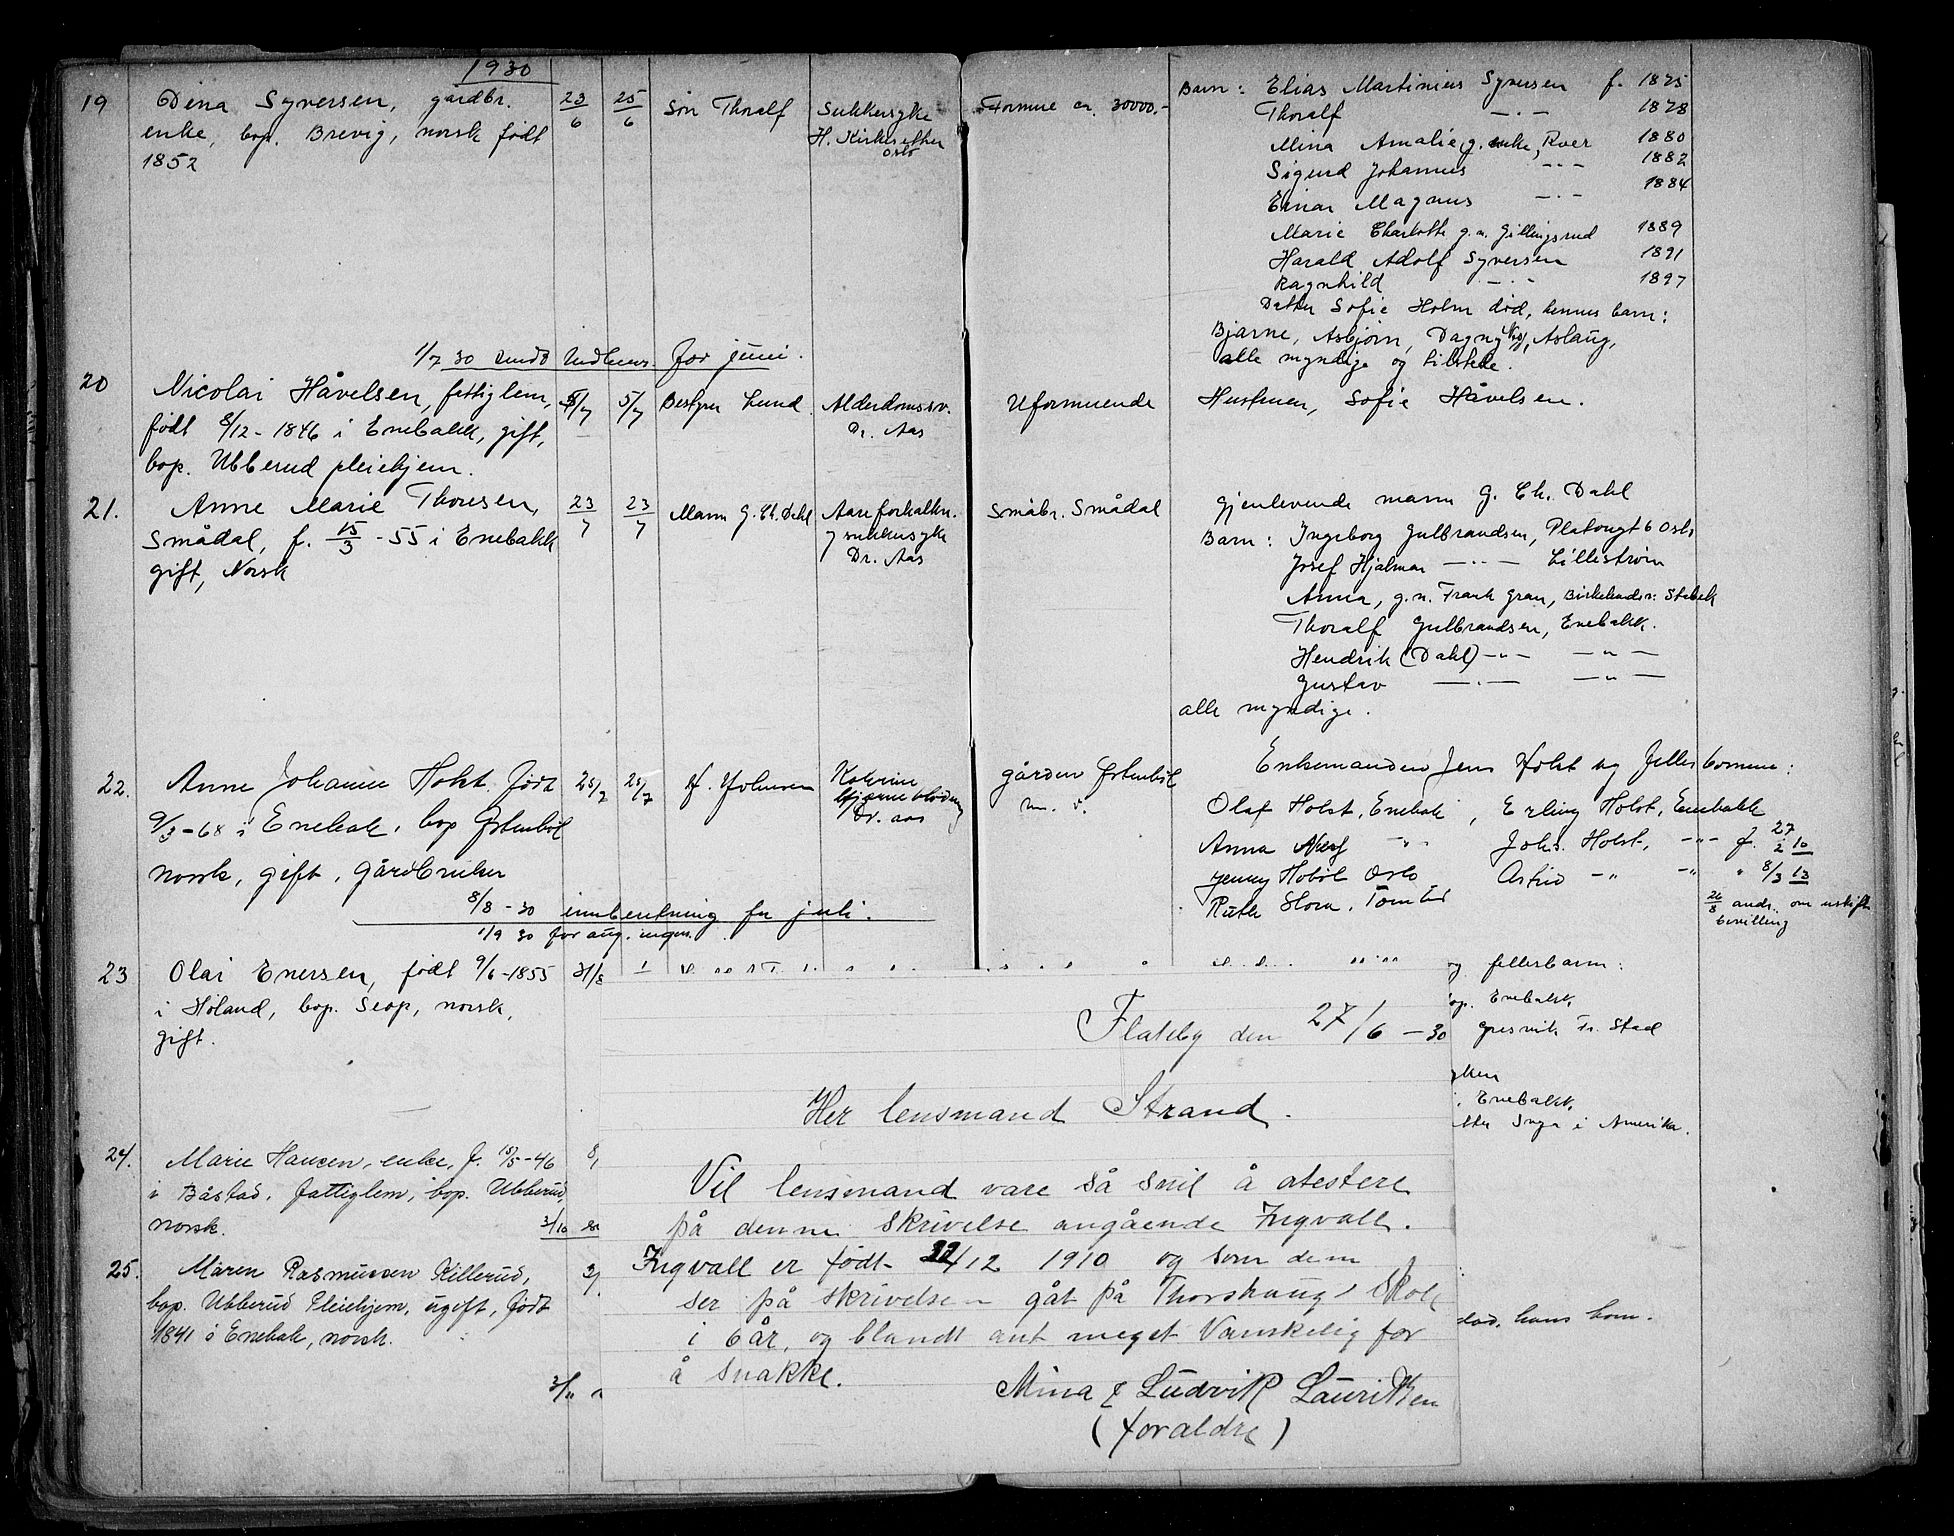 1930
19 Dina Syversen, gårdbr. 23/6 25/6 Søn Thoralf Sukkersyke Formue ca. 30000.-
enke, bop. Brevig, norsk født H. Kirkesether
1852 Oslo
Barn: Elias Martinius Syversen f. 1875
Thoralf -"- 1878
Mina Amalie, g. enke, Røer 1880
Sigurd Johannes -"- 1882
Einar Magnus -"- 1884
Marie Charlotte g.m. Gillingsrud 1889
Harald Adolf Syversen 1891
Ragnhild -"- 1897
Datter Sofie Holm død, hennes barn:
Bjarne, Asbjørn, Dagny, Aslaug,
alle myndige og tilstede.
1/7 30 sendt for juni.
20 Nicolai Håvelsen, fattiglem, 5/7 5/7 Bestyrer Lund Alderdomssv. Uformuende Hustruen, Sofie Håvelsen.
født 8/12-1846 i Enebakk, gift, Dr. Aas
bop. Ubberud pleiehjem.
21. Anne Marie Thoresen, 23/7 23/7 Mann G. Ch. Dahl Aareforkalkn. Småbr. Smådal
Smådal, f. 15/3-55 i Enebakk og sukkersyke
gift, Norsk Dr. Aas
Gjenlevende mann G. Ch. Dahl
Barn: Ingeborg Gulbrandsen, Platougt 6 Oslo
Josef Hjalmar -"- Lillestrøm
Anna, g.m. Frank Gran, Stabek
Thoralf Gulbrandsen, Enebakk.
Hendrik (Dahl) -"- -"-
Gustav -"- -"-
alle myndige.
22. Anne Johanne Holst født 25/7 25/7 Hjerneblødning gården Østenbøl
9/3-68 i Enebak, bop Østenbøl Dr. Aas m. v.
norsk, gift, gårdbruker
Enkemanden Jens Holst og fellesbarnene:
Olaf Holst, Enebak, Erling Holst, Enebakk
Anna -"- Johs. Holst, -"- f. 27/2 10
Jenny Hobøl Oslo Astrid -"- -"- " 8/3 13
Ruth Tomter
26/8 ands. om uskifte
bevilling
8/8-30 innberetning for juli.
1/9 30 for aug. ingen.
23 Olai Enersen, født 9/6-1855 31/8 og fellesbarn:
i Høland, bop. Seop, norsk, Enebakk
gift. Fr. Stad
Enebakk,
Inga i Amerika.
24. Marie Hansen, enke, f. 15/5-46
i Båstad, fattiglem, bop. Ubberud,
norsk. 3/10
25. Maren Rasmussen Killerud,
bop. Ubberud Pleiehjem, ugift, født død, hans barn.
1841 i Enebak, norsk.
3/11
Flateby den 27/6-30
Her lensmand Strand.
Vil lensmand vare så snil å atestere
på denne skrivelse angående Ingvall.
Ingvall er født 22/12 1910 og som dem
ser på skrivelsen gåt på Thorshaug Skole
i 6 år, og blandt ant meget Vanskelig for
å snakke.
Mina & Ludvik Lauritsen
(foraldre)